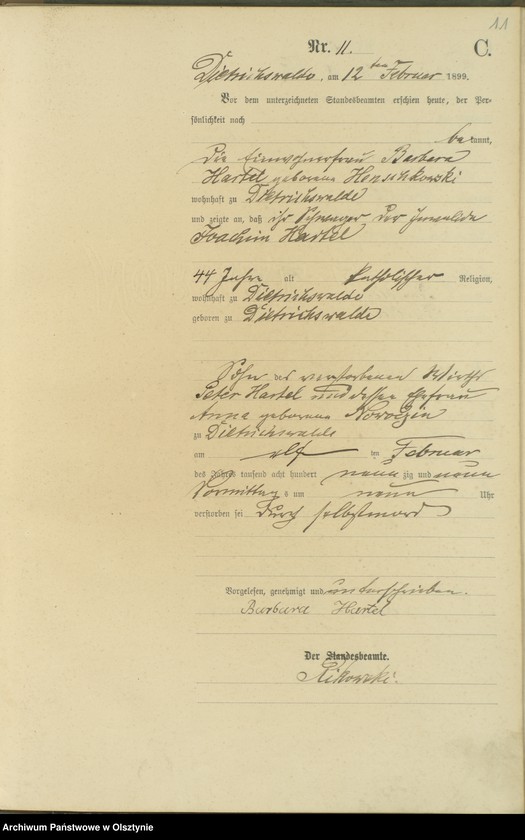 11
Nr. 11.
C.
Dietrichswalde, am 12 ten Februar 1899.
Vor dem unterzeichneten Standesbeamten erschien heute, der Per-
sönlichkeit nach
bekannt,
die Einwohnerfrau Barbara
Hartel geborene Henschkowski
wohnhaft zu Dietrichswalde
und zeigte an, daß ihr Schwager der
Joachim Hartel
44 Jahre alt katholischer Religion,
wohnhaft zu Dietrichswalde
geboren zu Dietrichswalde
Sohn des verstorbenen Wirths
Peter Hartel und dessen Ehefrau
Anna geborene
zu Dietrichswalde
am elf ten Februar
des Jahres tausend acht hundert neun zig und neun
Vormittags um neun Uhr
verstorben sei durch Selbstmord
Vorgelesen, genehmigt und unterschrieben.
Barbara Hartel
Der Standesbeamte.
Archiwum Państwowe w Olsztynie